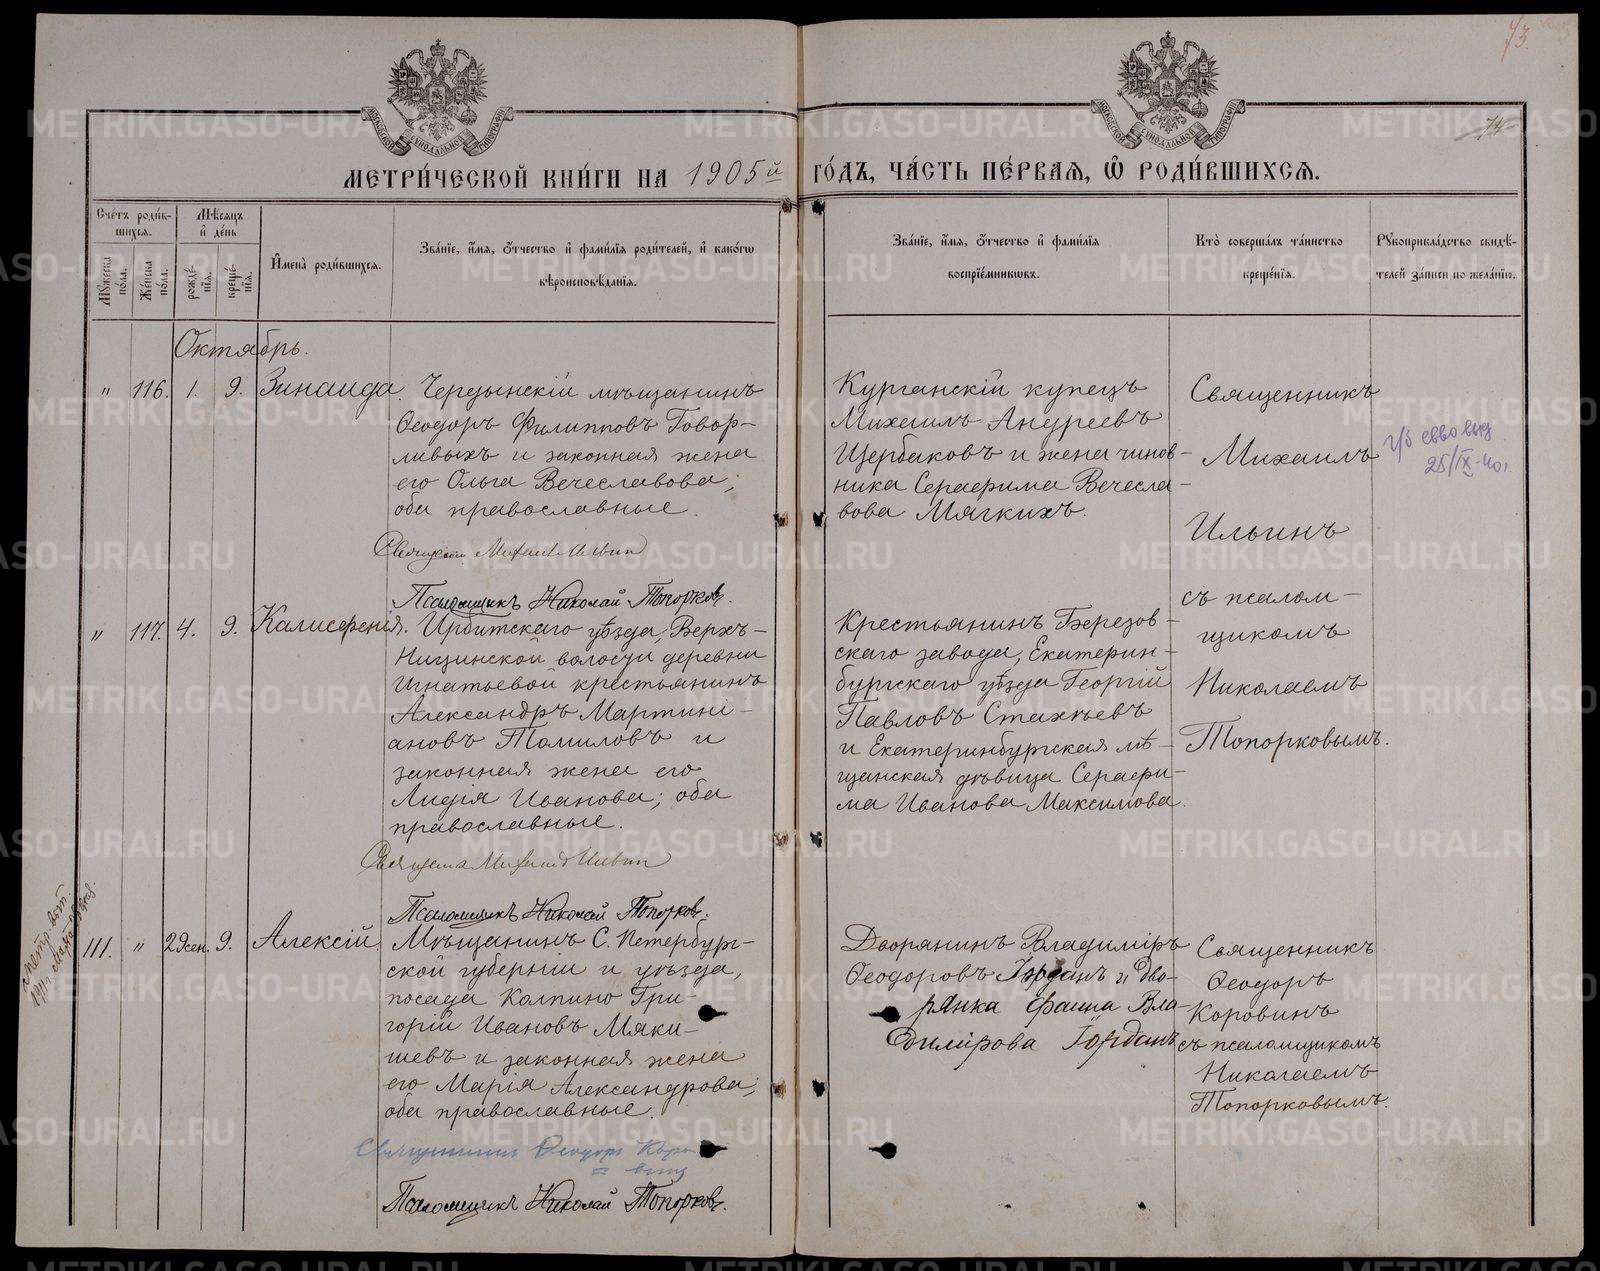 73.
МОСКОВСКОЙ СѴНОДАЛЬНОЙ ТИПОГРАФІИ
МОСКОВСКОЙ СѴНОДАЛЬНОЙ ТИПОГРАФІИ
МЕТРИ́ЧЕСКОЙ КНИ́ГИ НА 1905й ГО́ДЪ, ЧА́СТЬ ПЕ́РВАЯ, Ѡ РОДИ́ВШИХСЯ.
Сче́тъ роди́в-
шихся.
Му́жеска по́ла.
Же́нска по́ла.
Мѣ́сяцъ
и де́нь
рожде́нїя.
креще́нїя.
Имена̀ роди́вшихся.
Зва́нїе, и́мя, о́тчество и фами́лїя роди́телей, и како́гѡ
вѣроисповѣ́данїя.
Зва́нїе, и́мя, о́тчество и фами́лїя
воспрїе́мникѡвъ.
Кто̀ соверша́лъ та́инство
креще́нїя.
Рукоприкла́дство свидѣ́-
телей за́писи по жела́нїю.
Октябрь.
" 116. 1. 9. Зинаида.
Чердынскій мѣщанинъ
Ѳеодоръ Филипповъ Говор-
ливыхъ и законная жена
его Ольга Вечеславова;
оба православные.
Священ. Михаил Ильин
Псаломщикъ Николай Топорков.
Курганскій купецъ
Михаилъ Андреевъ
Щербаковъ и жена чинов-
ника Серафима Вечесла-
вова Мягкихъ.
Священникъ
Михаилъ
Ильинъ
съ псалом-
щикомъ
Николаемъ
Топорковымъ.
25/IX-40г.
" 117. 4. 9. Калисфенія.
Ирбитскаго уѣзда, Верхъ-
Ницинской волости деревни
Игнатьевой крестьянинъ
Александръ Мартині-
ановъ Томиловъ и
законная жена его
Лидія Иванова; оба
православные.
Священ. Михаил Ильин
Псаломщикъ Николай Топорков.
Крестьянинъ Березов-
скаго завода, Екатерин-
бургскаго уѣзда Георгій
Павловъ Стахѣевъ
и Екатеринбургская мѣ-
щанская дѣвица Серафи-
ма Иванова Максимова.
111. " 29 сен. 9. Алексій.
Мѣщанинъ С. Петербург-
ской губерніи и уѣзда,
посада Колпино Гри-
горій Ивановъ Мяки-
шевъ и законная жена
его Марія Александрова;
оба православные.
Священник Ѳеодоръ Коро
вин
Псаломщикъ Николай Топорков.
Дворянинъ Владиміръ
Ѳеодоровъ Іорданъ и дво-
рянка Фаина Вла-
димірова Іорданъ
Священникъ
Ѳеодоръ
Коровинъ
съ псаломщикомъ
Николаемъ
Топорковымъ.
METRIKI.GASO-URAL.RU